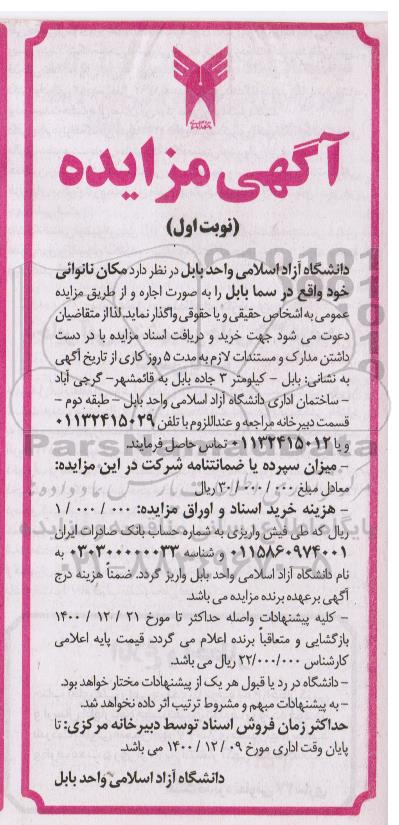 آگهی مزایده
(نوبت اول)
دانشگاه آزاد اسلامی واحد بابل در نظر دارد مکان نانوائی
خود واقع در سما بابل را به صورت اجاره و از طریق مزایده
عمومی به اشخاص حقیقی و یا حقوقی واگذار نماید. لذا از متقاضیان
دعوت می شود جهت خرید و دریافت اسناد مزایده با در دست
داشتن مدارک و مستندات لازم به مدت ۵ روز کاری از تاریخ آگهی
به نشانی: بابل - کیلومتر ۳ جاده بابل به قائمشهر- گرجی آباد
- ساختمان اداری دانشگاه آزاد اسلامی واحد بابل - طبقه دوم -
قسمت دبیرخانه مراجعه و عنداللزوم با تلفن ۰۱۱۳۲۴۱۵۰۲۹
و یا ۰۱۱۳۲۴۱۵۰۱۲ تماس حاصل فرمایند.
- میزان سپرده یا ضمانتنامه شرکت در این مزایده:
معادل مبلغ ۳۰/۰۰۰/۰۰۰ ریال
- هزینه خرید اسناد و اوراق مزایده: ۱/۰۰۰/۰۰۰
ریال که طی فیش واریزی به شماره حساب بانک صادرات ایران
۰۱۱۵۸۶۰۹۷۴۰۰۱ و شناسه ۰۳۰۳۰۰۰۰۰۰۳۳ به
نام دانشگاه آزاد اسلامی واحد بابل واریز گردد. ضمناً هزینه درج
آگهی بر عهده برنده مزایده می باشد.
- کلیه پیشنهادات واصله حداکثر تا مورخ ۲۱ / ۱۲ / ۱۴۰۰
بازگشایی و متعاقباً برنده اعلام می گردد. قیمت پایه اعلامی
کارشناس ۲۲/۰۰۰/۰۰۰ ریال می باشد.
- دانشگاه در رد یا قبول هر یک از پیشنهادات مختار خواهد بود.
- به پیشنهادات مبهم و مشروط ترتیب اثر داده نخواهد شد.
حداکثر زمان فروش اسناد توسط دبیرخانه مرکزی: تا
پایان وقت اداری مورخ ۰۹ / ۱۲ / ۱۴۰۰ می باشد.
دانشگاه آزاد اسلامی واحد بابل